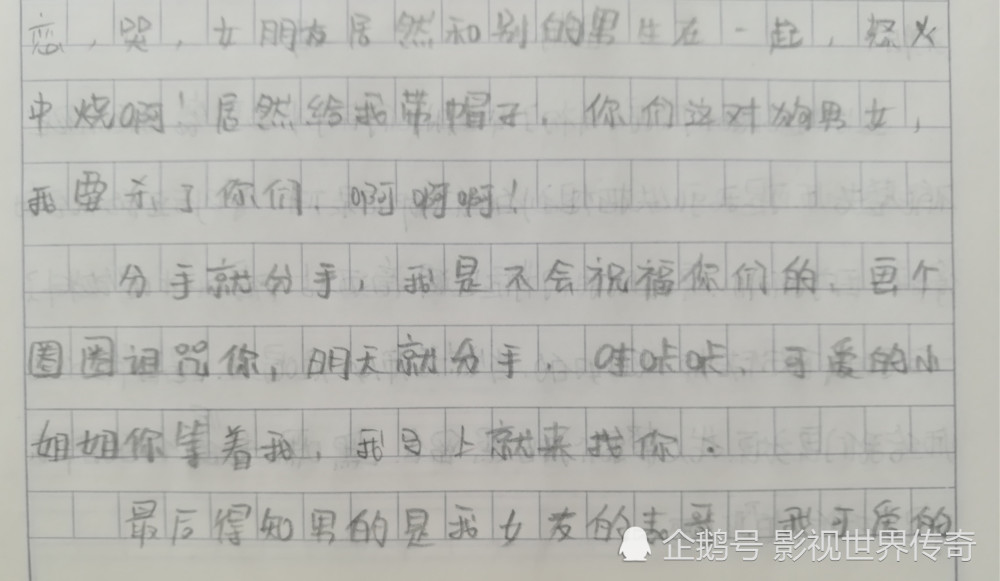 恋,哭,女朋友居然和别的男生在一起,怒火
中烧啊!居然给我带帽子.你们这对狗男女,
我要杀了你们.啊啊啊!
分手就分手,我是不会祝福你们的.画个
圈圈诅咒你,明天就分手.哇咔咔.可爱的小
姐姐你等着我,我马上就来找你.
最后得知男的是我女友的表哥 我可爱的
企鹅号 影视世界传奇